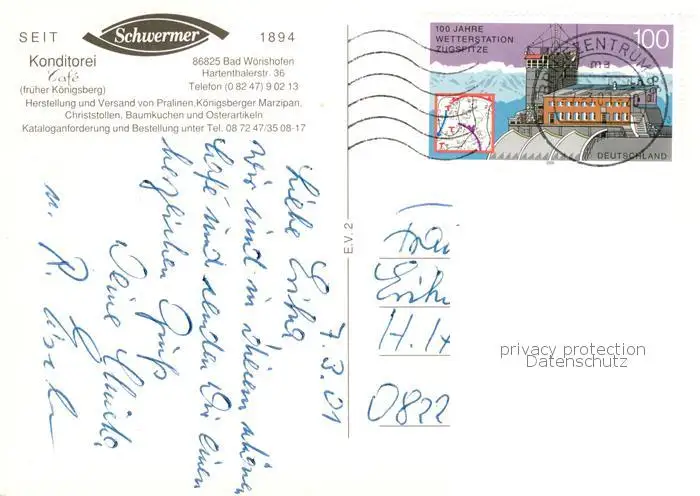 SEIT Schwermer 1894
Konditorei
Café
(früher Königsberg)
86825 Bad Wörishofen
Hartenthalerstr. 36
Telefon (0 82 47) 9 02 13
Herstellung und Versand von Pralinen, Königsberger Marzipan,
Christstollen, Baumkuchen und Osterartikeln
Kataloganforderung und Bestellung unter Tel. 08 72 47/35 08-17
100 JAHRE
WETTERSTATION
ZUGSPITZE
100
DEUTSCHLAND
ZENTRUM
E.V. 2
7.3.01
Liebe Erika
wir sind in diesem schönen
Café und senden Dir einen
herzlichen Gruß
Deine
u.
Frau
H.
0822
privacy protection
Datenschutz